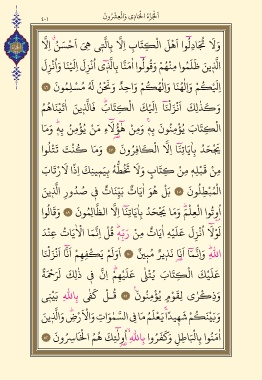 اَلْجُزْءُ الْحَادِى وَالْعِشْرُونَ
٤٠١
وَلَا تُجَادِلُٓوا اَهْلَ الْكِتَابِ اِلَّا بِالَّت۪ى هِىَ اَحْسَنُۗ اِلَّا
الَّذ۪ينَ ظَلَمُوا مِنْهُمْ وَقُولُٓوا اٰمَنَّا بِالَّذ۪ٓى اُنْزِلَ اِلَيْنَا وَاُنْزِلَ
اِلَيْكُمْ وَاِلٰهُنَا وَاِلٰهُكُمْ وَاحِدٌ وَنَحْنُ لَهُ مُسْلِمُونَ ﴿٤٦﴾
وَكَذٰلِكَ اَنْزَلْنَٓا اِلَيْكَ الْكِتَابَۜ فَالَّذ۪ينَ اٰتَيْنَاهُمُ
الْكِتَابَ يُؤْمِنُونَ بِه۪ۚ وَمِنْ هٰٓؤُ۬لَٓاءِ مَنْ يُؤْمِنُ بِه۪ۜ وَمَا
يَجْحَدُ بِاٰيَاتِنَٓا اِلَّا الْكَافِرُونَ ﴿٤٧﴾ وَمَا كُنْتَ تَتْلُوا
مِنْ قَبْلِه۪ مِنْ كِتَابٍ وَلَا تَخُطُّهُ بِيَم۪ينِكَ اِذًا لَارْتَابَ
الْمُبْطِلُونَ ﴿٤٨﴾ بَلْ هُوَ اٰيَاتٌ بَيِّنَاتٌ ف۪ى صُدُورِ الَّذ۪ينَ
اُو۫تُوا الْعِلْمَۜ وَمَا يَجْحَدُ بِاٰيَاتِنَٓا اِلَّا الظَّالِمُونَ ﴿٤٩﴾ وَقَالُوا
لَوْلَٓا اُنْزِلَ عَلَيْهِ اٰيَاتٌ مِنْ رَبِّه۪ۜ قُلْ اِنَّمَا الْاٰيَاتُ عِنْدَ
اللّٰهِۜ وَاِنَّمَٓا اَنَا۬ نَذ۪يرٌ مُب۪ينٌ ﴿٥٠﴾ اَوَلَمْ يَكْفِهِمْ اَنَّٓا اَنْزَلْنَا
عَلَيْكَ الْكِتَابَ يُتْلٰى عَلَيْهِمْۜ اِنَّ ف۪ى ذٰلِكَ لَرَحْمَةً
وَذِكْرٰى لِقَوْمٍ يُؤْمِنُونَ۟ ﴿٥١﴾ قُلْ كَفٰى بِاللّٰهِ بَيْن۪ى
وَبَيْنَكُمْ شَه۪يدًاۚ يَعْلَمُ مَا فِى السَّمٰوَاتِ وَالْاَرْضِۜ وَالَّذ۪ينَ
اٰمَنُوا بِالْبَاطِلِ وَكَفَرُوا بِاللّٰهِ اُو۬لٰٓئِكَ هُمُ الْخَاسِرُونَ ﴿٥٢﴾